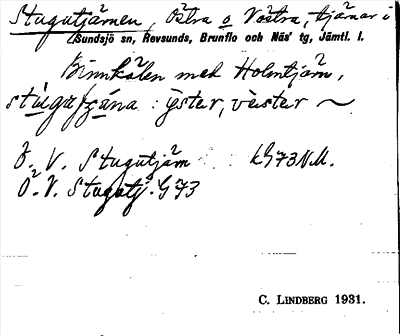 Stugutjärnen, Östra o Västra, tjärnar i
Sundsjö sn, Revsunds, Brunflo och Näs' tg, Jämtl. l.
Binnkälen med Holmtjärn,
: yster, vàster ~
Ö. V. Stugutjärn kG73N.M.
Ö. V. Stugutj. G73
C. LINDBERG 1931.